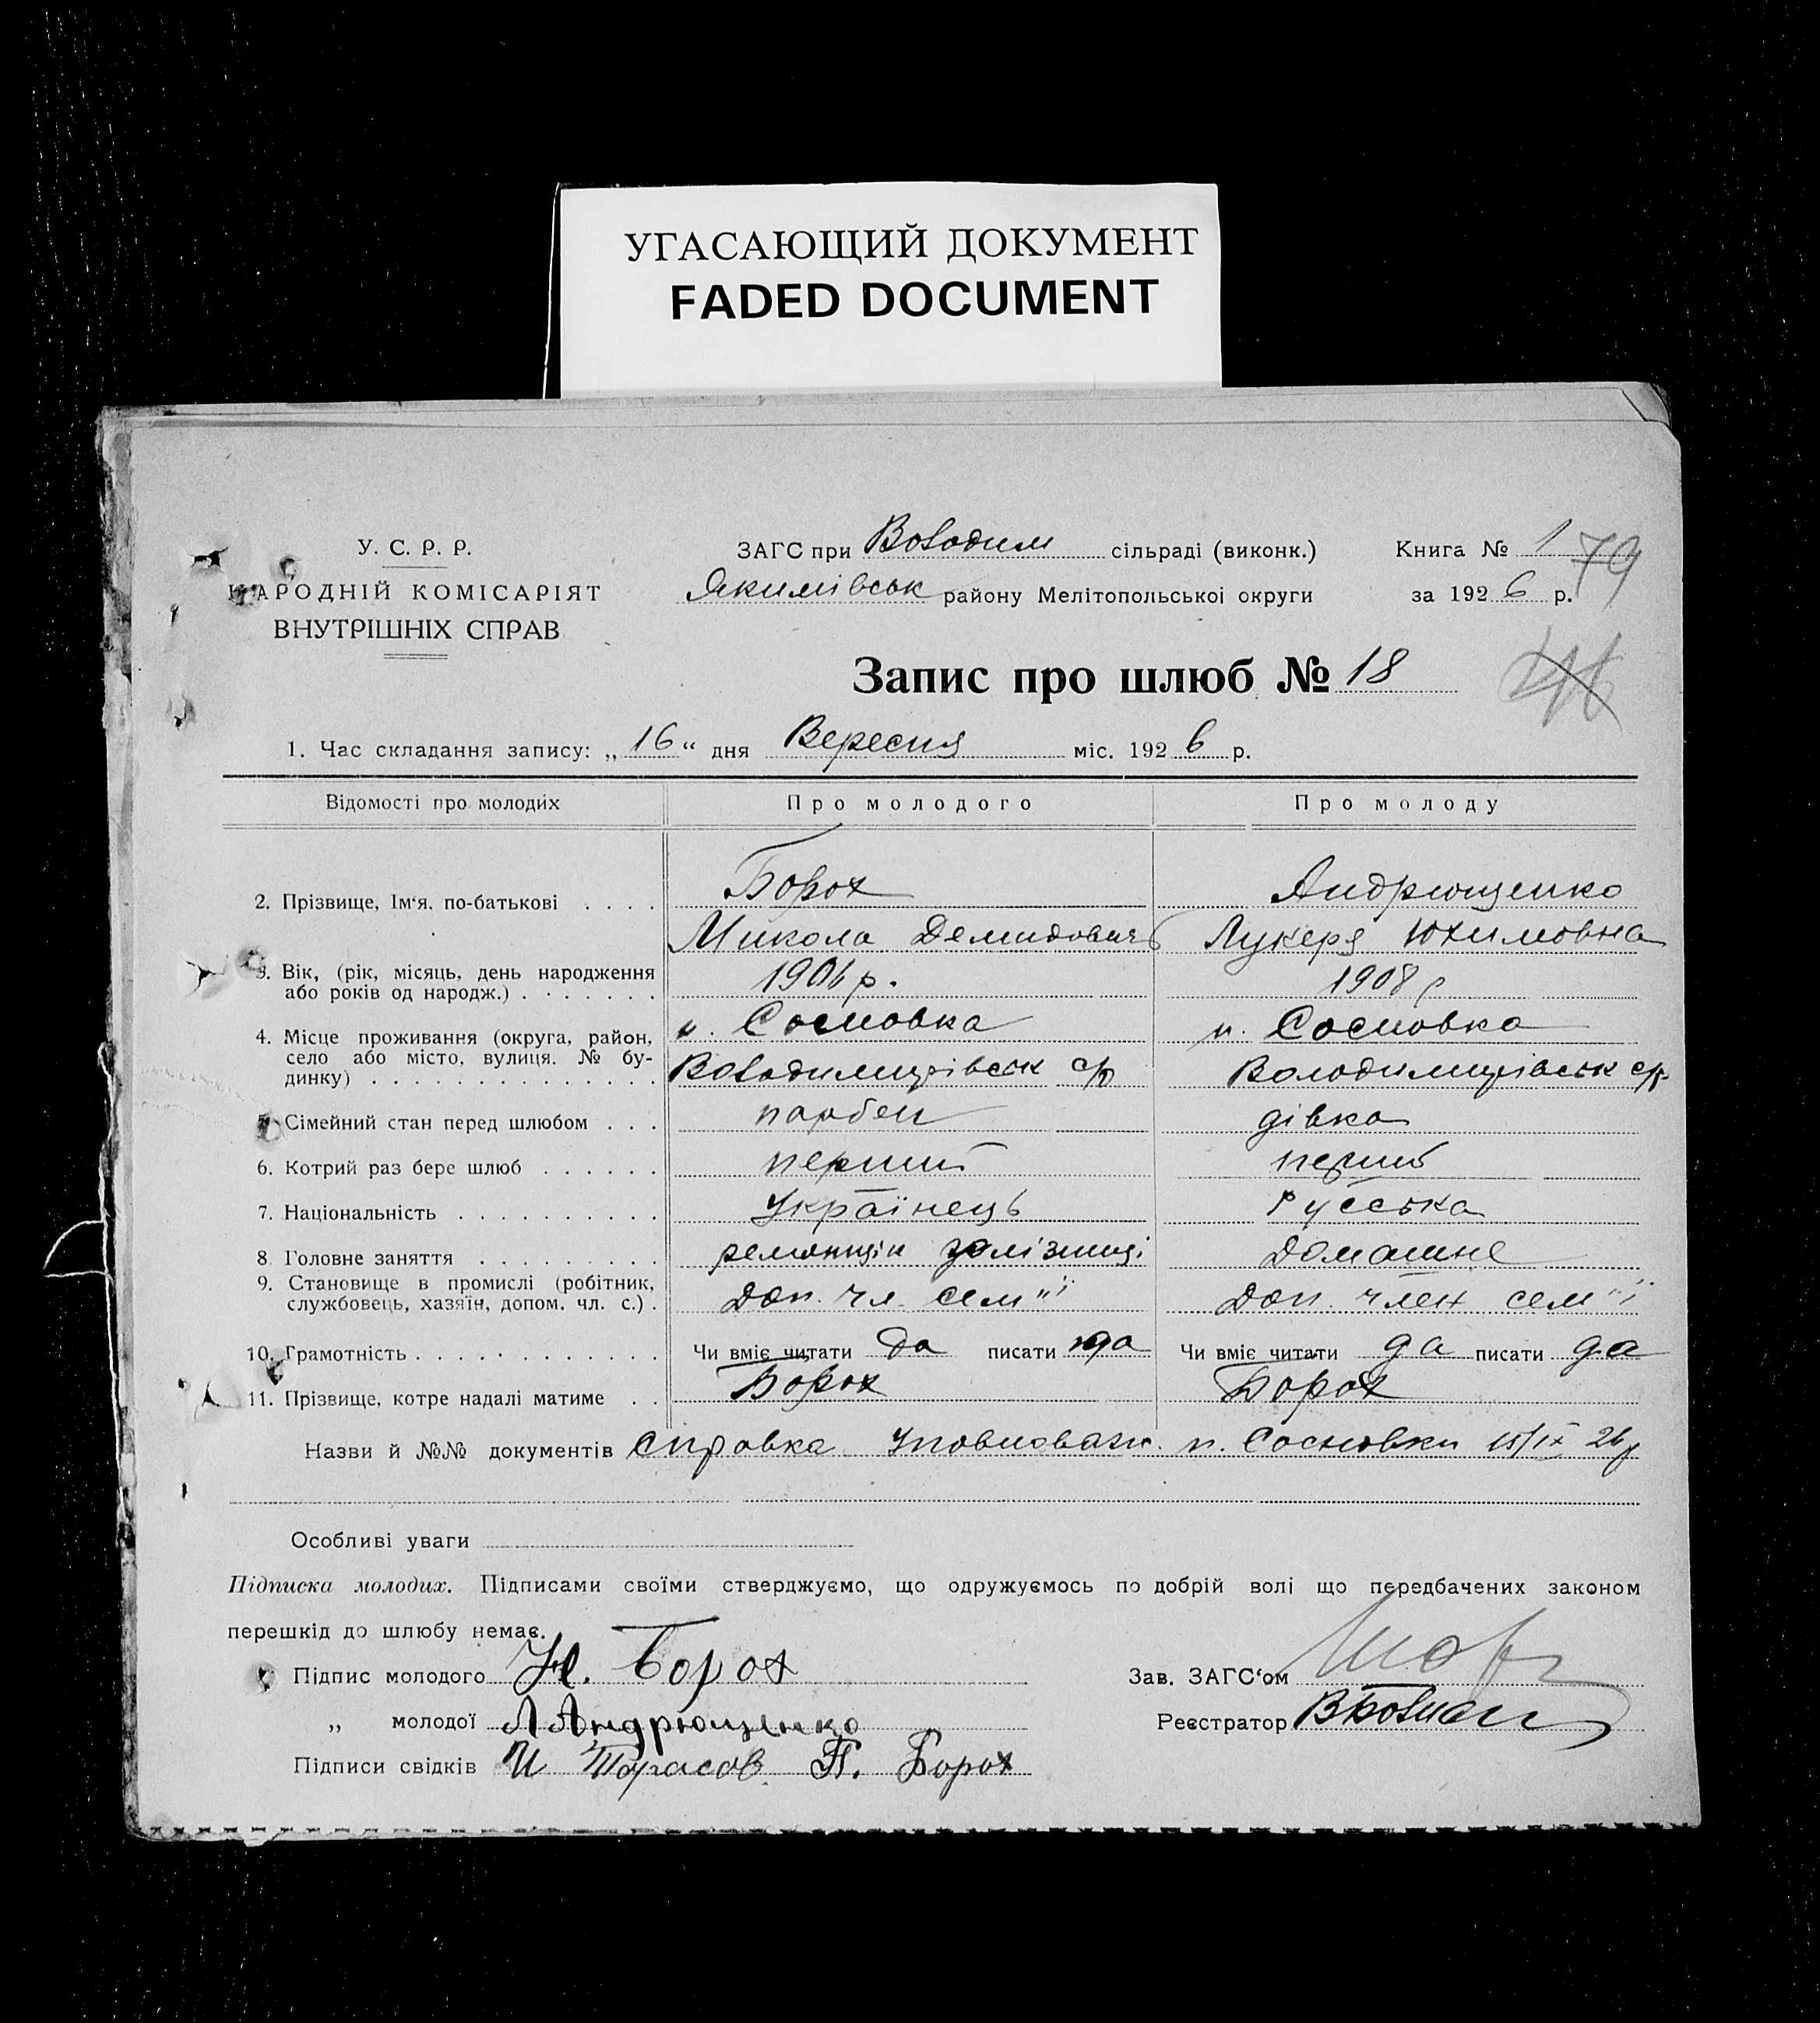 УГАСАЮЩИЙ ДОКУМЕНТ
FADED DOCUMENT
У. С. Р. Р.
НАРОДНІЙ КОМІСАРІЯТ
ВНУТРІШНІХ СПРАВ
ЗАГС при Володим сільраді (виконк.)
Якимівськ району Мелітопольськоі округи
Книга № 1
79
за 1926 р.
Запис про шлюб № 18
1. Час складання запису: „16“ дня Вересня міс. 1926 р.
Відомості про молодих Про молодого Про молоду
2. Прізвище, Ім‘я, по-батькові . . . . Борох Андрющенко
Микола Демидович Лукеря Юхимовна
3. Вік, (рік, місяць, день народження
або років од народж.) . . . . . . . 1906 р. 1908 р
4. Місце проживання (округа, район,
село або місто, вулиця, № бу-
динку) . . . . . . . . . . . . . .
п. Сосновка п. Сосновка
Володимирівськ с/р Володимирівськ с/р
5. Сімейний стан перед шлюбом . . . парбен дівка
6. Котрий раз бере шлюб . . . . . . перший перший
7. Національність . . . . . . . . . . Українець Русська
8. Головне заняття . . . . . . . . . залізниці Домашнє
9. Становище в промислі (робітник,
службовець, хазяїн, допом. чл. с.) . Доп. чл. сем"ї Доп. член сем"ї
10. Грамотність . . . . . . . . . . . . Чи вміє читати да писати да Чи вміє читати да писати да
11. Прізвище, котре надалі матиме . . Борох Борох
Назви й №№ документів Справка Уповноваж. п. Сосновки 15/IX 26р
Особливі уваги
Підписка молодих. Підписами своїми стверджуємо, що одружуємось по добрій волі що передбачених законом
перешкід до шлюбу немає.
Підпис молодого Н. Борох
„ молодої Л Андрющенко
Підписи свідків И Тарасов П. Борох
Зав. ЗАГС‘ом
Реєстратор